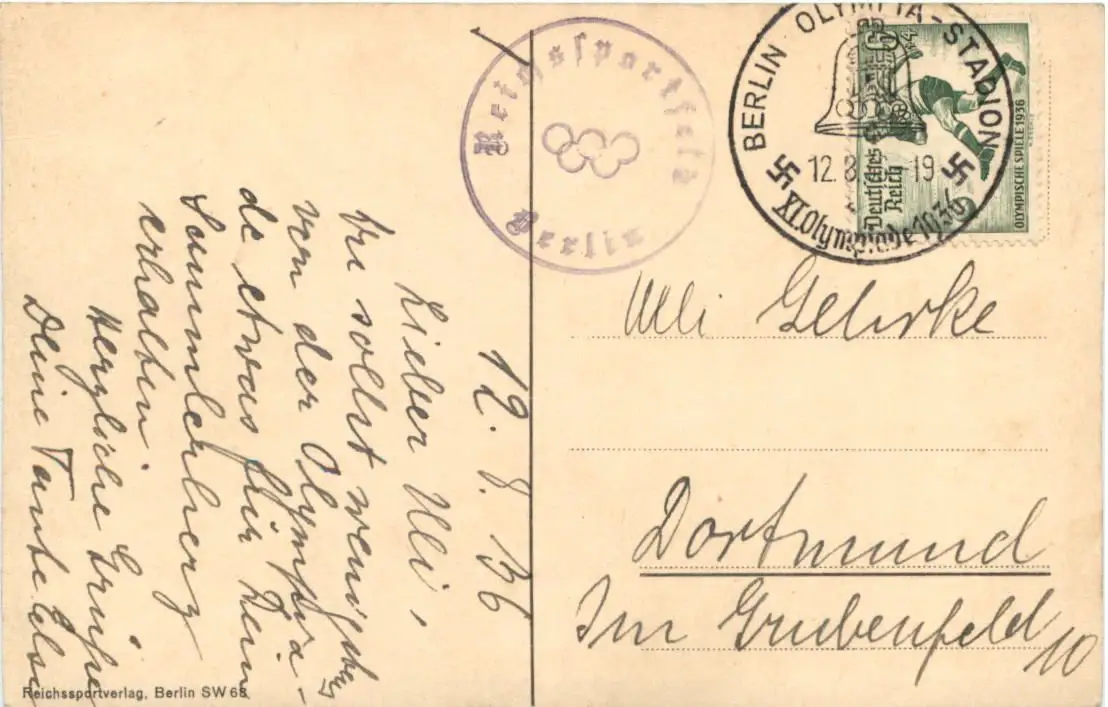 12. 8. 36
Lieber Uli,
Du sollst wenigstens
von der Olympia-
de etwas für Dein
Sammlerherz
erhalten.
Herzliche Grüße
Deine Tante Else
Reichssportverlag, Berlin SW 68
Reichssportfeld
Berlin
BERLIN OLYMPIA-STADION
12.8. -19
XI.Olympiade 1936
6+4
Deutsches
Reich
OLYMPISCHE SPIELE 1936
Ulli Gehrke
Dortmund
Im Grubenfeld 10